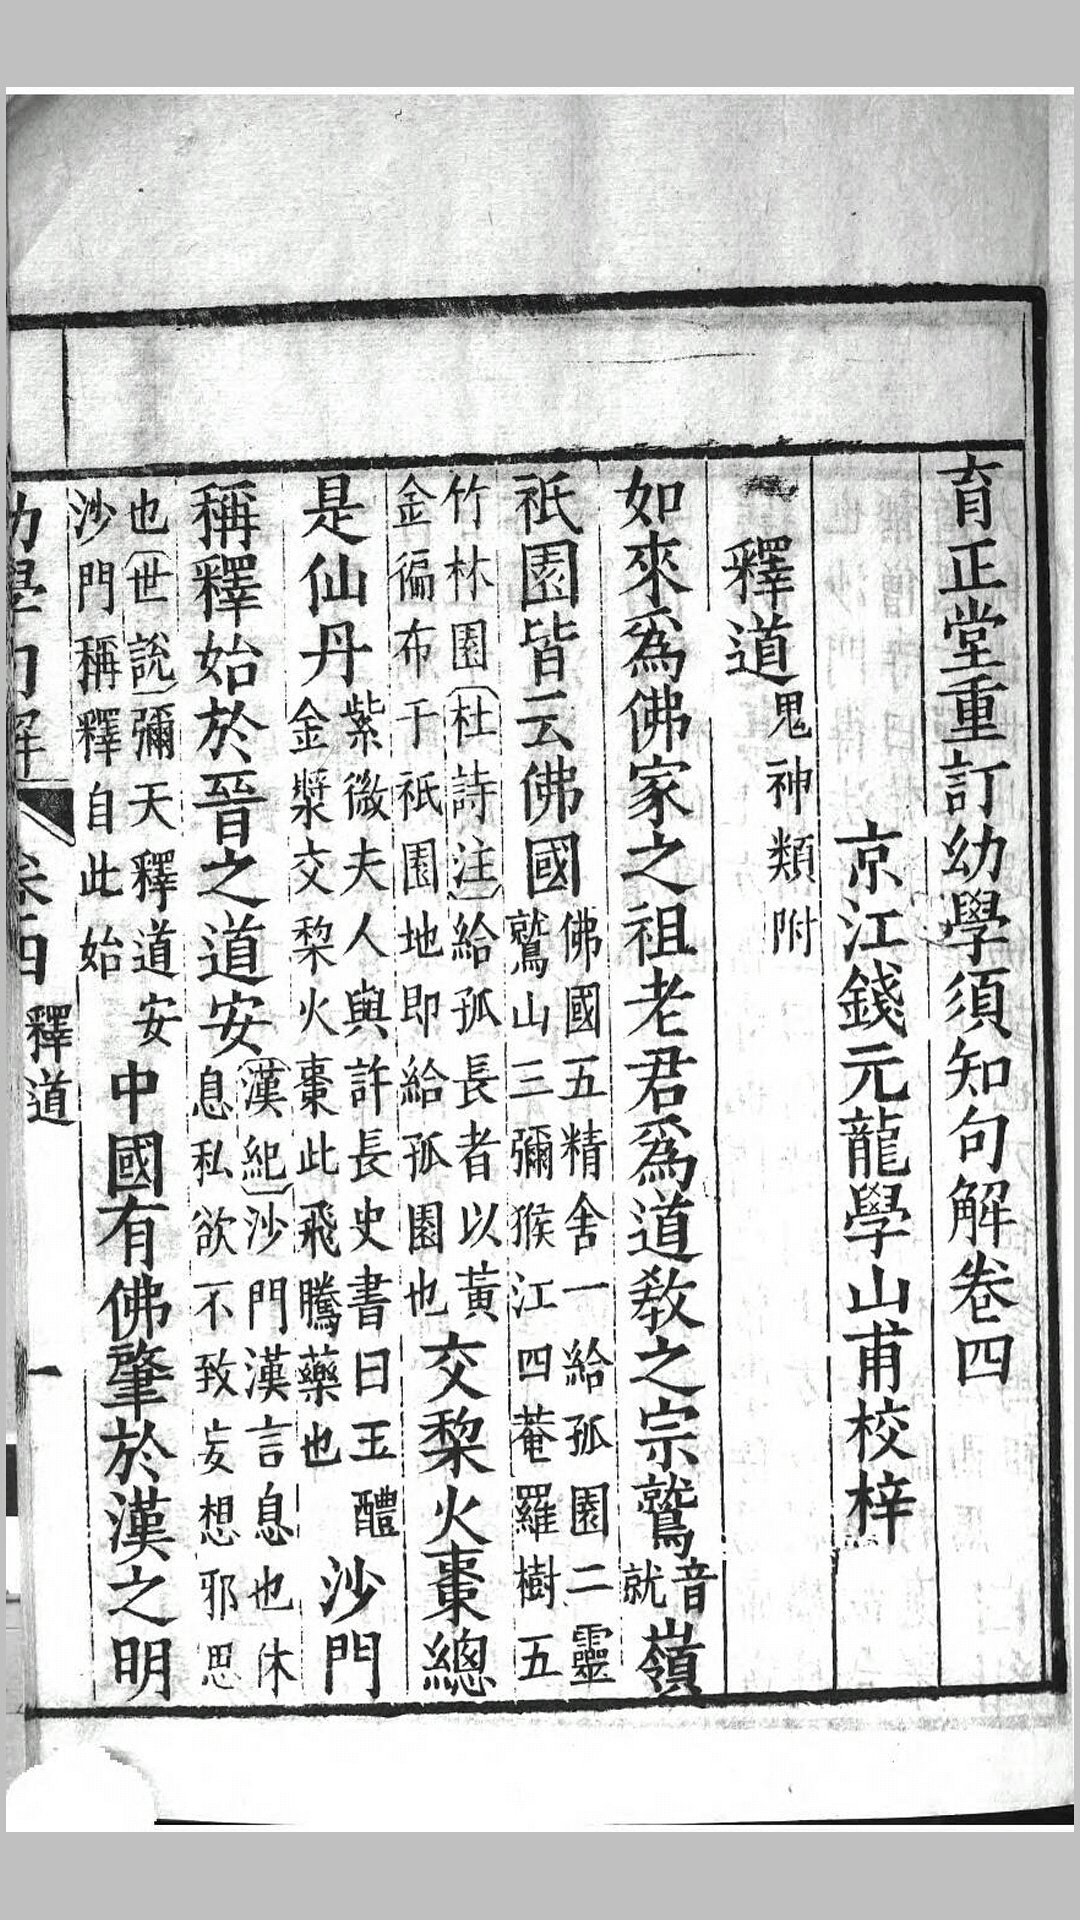 育正堂重訂幼學須知句解卷四
京江錢元龍學山甫校梓
釋道鬼神類附
如來爲佛家之祖老君爲道教之宗鷲音就嶺
祇園皆云佛國佛國五精舍一給孤園二靈鷲山三彌猴江四菴羅樹五
竹林園杜詩注給孤長者以黃金徧布于祇園地即給孤園也交棃火棗總
是仙丹紫微夫人與許長史書曰玉醴金漿交棃火棗此飛騰藥也沙門
稱釋始於晉之道安漢紀沙門漢言息也休息私欲不致妄想邪思
也世說彌天釋道安沙門稱釋自此始中國有佛肇於漢之明
幼學句解 卷四 釋道 一